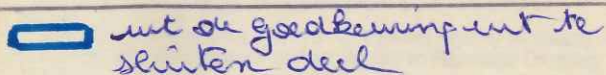 uit de goedkeuring uit te
sluiten deel